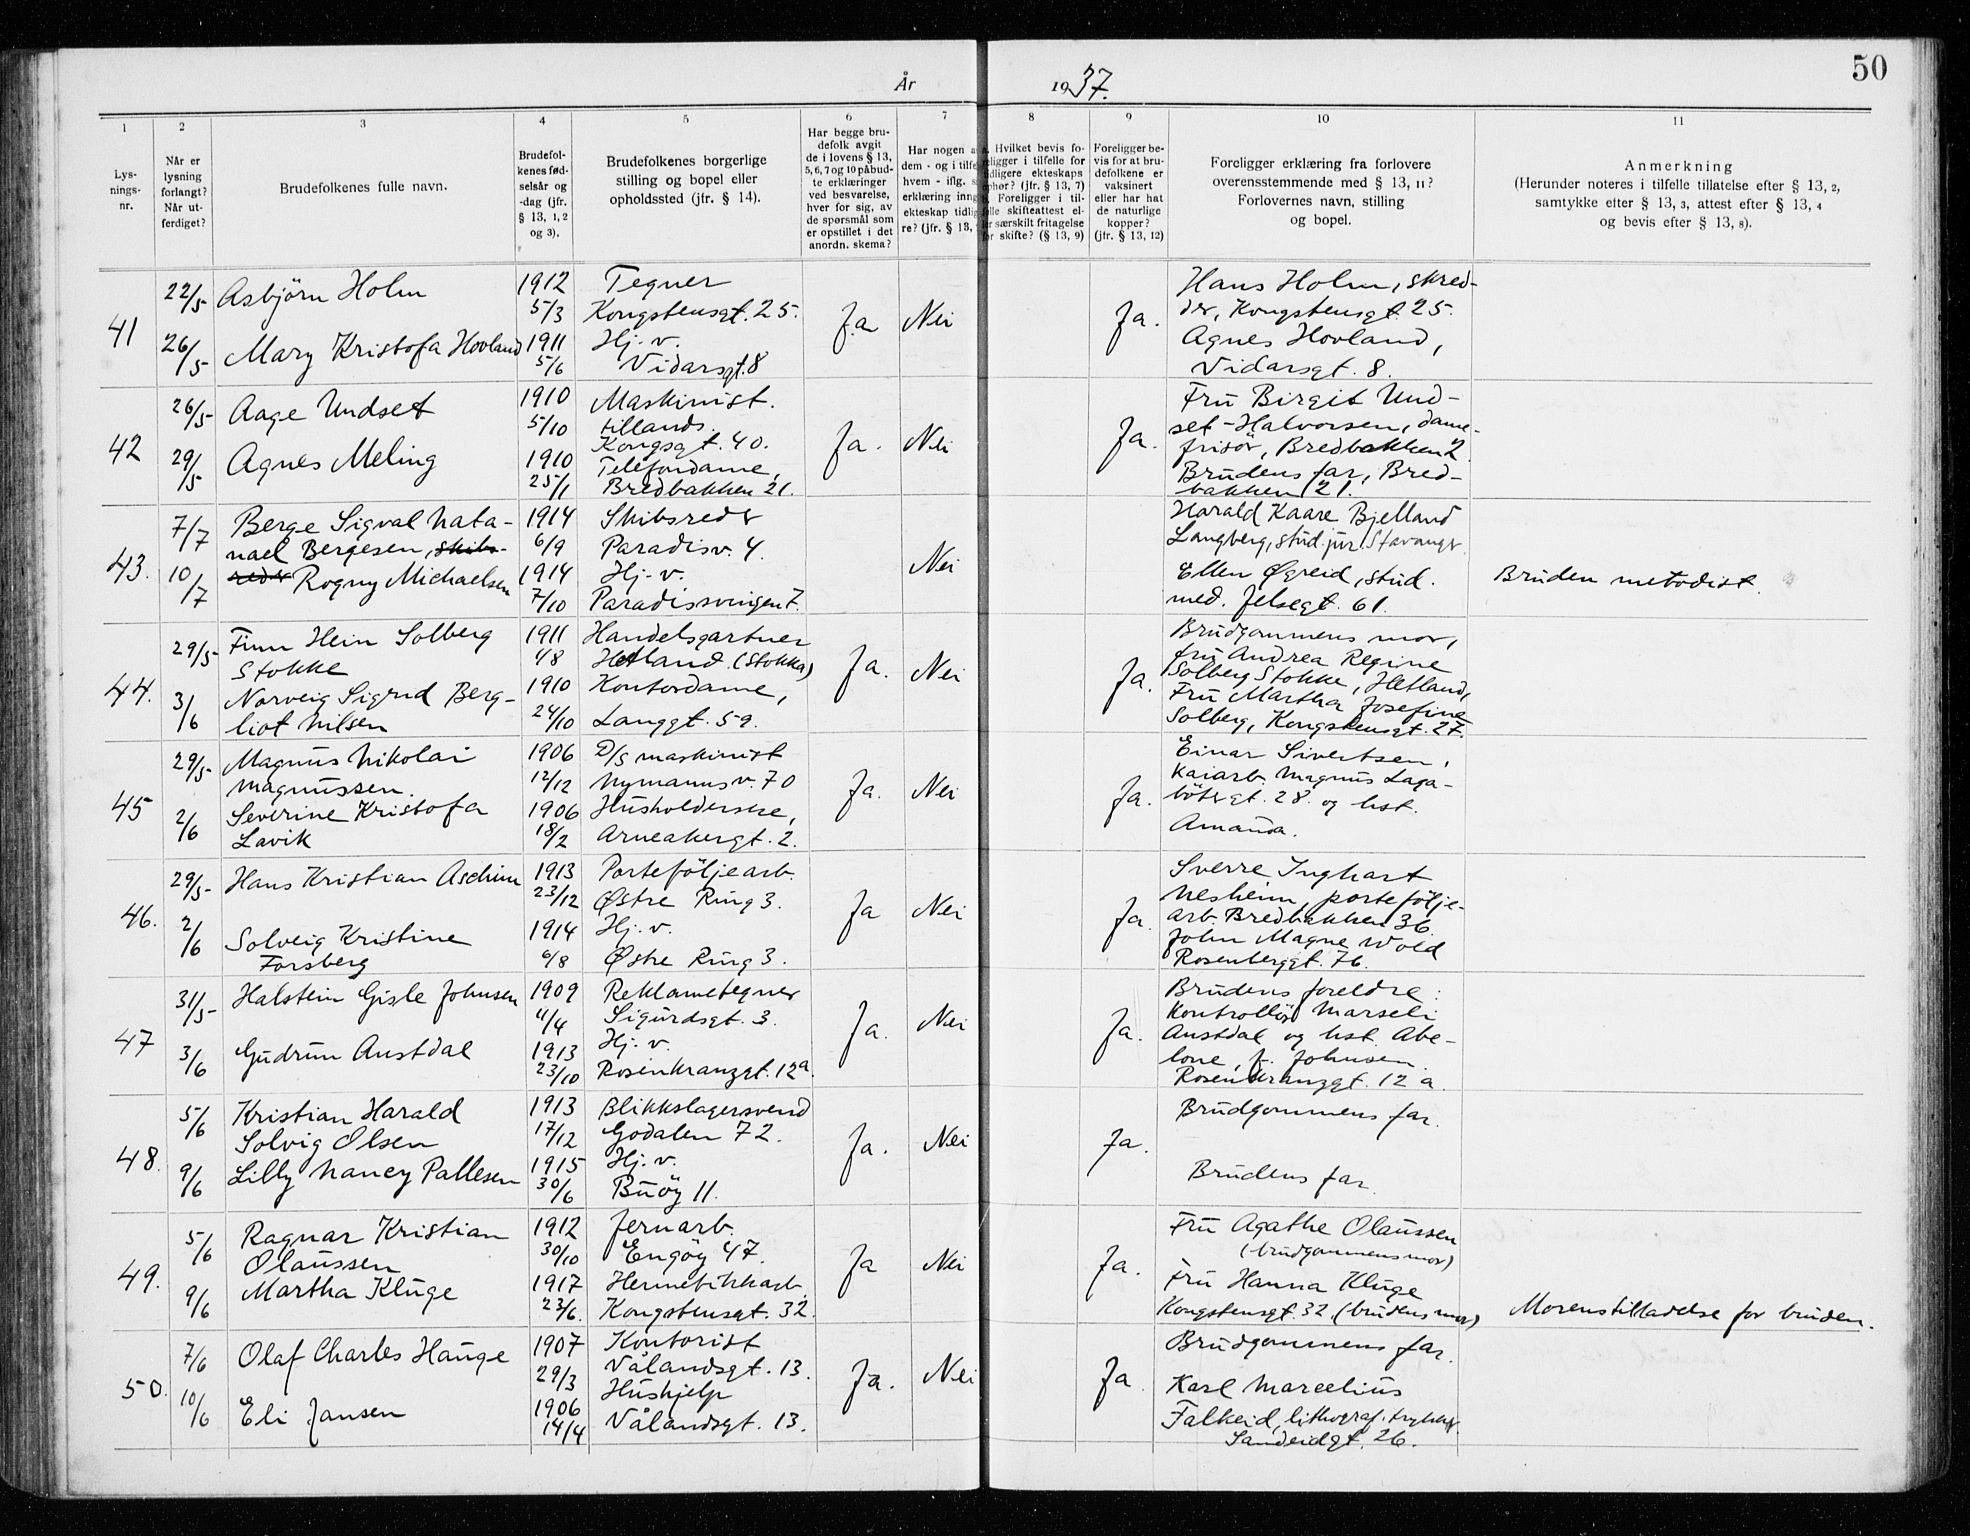 50
År 1937.
1 2 3 4 5 6 7 8 9 10 11
Lys-
nings-
nr.
Når er
lysning
forlangt?
Når ut-
ferdiget?
Brudefolkenes fulle navn.
Brudefol-
kenes fød-
selsår og
-dag (jfr.
§ 13, 1, 2
og 3).
Brudefolkenes borgerlige
stilling og bopel eller
opholdssted (jfr. § 14).
Har begge bru-
defolk avgit
de i lovens § 13,
5, 6, 7 og 10 påbud-
te erklæringer
ved besvarelse,
hver for sig, av
de spørsmål som
er opstillet i det
anordn. skema?
Har nogen a
dem - og i tilfe
hvem - iflg. s
erklæring inng
ekteskap tidlig
re? (jfr. § 13,
Hvilket bevis fo-
religger i tilfelle for
tidligere ekteskaps
ophør? (jfr. § 13, 7)
Foreligger i til-
felle skifteattest el-
ler særskilt fritagelse
for skifte? (§ 13, 9)
Foreligger be-
vis for at bru-
defolkene er
vaksinert
eller har hat
de naturlige
kopper?
(jfr. § 13, 12)
Foreligger erklæring fra forlovere
overensstemmende med § 13, 11?
Forlovernes navn, stilling
og bopel.
Anmerkning
(Herunder noteres i tilfelle tillatelse efter § 13, 2,
samtykke efter § 13, 3, attest efter § 13, 4
og bevis efter § 13, 8).
41
22/5
26/5
Asbjörn Holm
Mary Kristofa Hovland
1912
5/3
1911
5/6
Tegner
Kongstensgt. 25.
Hj.-v.
Vidarsgt. 8
Ja
Nei
Ja.
Hans Holm, skred-
der, Kongstensgt. 25.
Agnes Hovland,
Vidarsgt. 8.
42
26/5
29/5
Aage Undset
Agnes Meling
1910
5/10
1910
25/1
Maskinist.
tillands.
Kongsgt. 40.
Telefondame,
Bredbakken 21.
Ja.
Nei
Ja.
Fru Birgit Und-
set-Halvorsen, dame-
frisör, Bredbakken 2
Brudens far, Bred-
bakken 21.
43.
7/7
10/7
Berge Sigval Nata-
nael Bergesen, skibs-
reder Rogny Michaelsen
1914
6/9
1914
7/10
Skibsreder
Paradisv. 4.
Hj.-v.
Paradissvingen 7.
Nei
Harald Kaare Bjelland
Langberg, stud. jur. Stavanger
Ellen Øgreid, stud.
med. Jelsegt. 61.
Bruden metodist.
44.
29/5
3/6
Finn Hein Solberg
Stokke
Norveig Sigrud Berg-
liot Nilsen
1911
4/8
1910
24/10
Handelsgartner
Hetland (Stokka)
Kontordame,
Langgt. 59.
Ja.
Nei
Ja.
Brudgommens mor,
fru Andrea Regine
Solberg Stokke, Hetland,
Fru Martha Josefine
Solberg, Kongstensgt. 27.
45
29/5
2/6
Magnus Nikolai
Magnussen.
Severine Kristofa
Lavik
1906
12/12
1906
18/2
D/S maskinist
Nymannsv. 70
Husholderske,
Arneakergt. 2.
Ja.
Nei
Ja.
Einar Sivertsen,
Kaiarb. Magnus Laga-
bötergt. 28. og hst.
Amanda.
46.
29/5
2/6
Hans Kristian Aschim
Solveig Kristine
Forsberg
1913
23/12
1914
6/8
Porteföljearb.
Østre Ring 3.
Hj.-v.
Østre Ring 3.
Ja
Nei
Ja.
Sverre Inghart
Nesheim, portefölje-
arb. Bredbakken 36.
John Magne Wold
Rosenberggt. 76.
47
31/5
3/6
Halstein Gisle Johnsen
Gudrun Austdal
1909
4/4
1913
23/10
Reklametegner
Sigurdsgt. 3.
Hj.-v.
Rosenkranzgt. 12a.
Ja.
Nei
Ja.
Brudens foreldre:
Kontrollör Marseli
Austdal og hst. Abe-
lone, f. Johnsen.
Rosenkranzgt. 12 a.
48.
5/6
9/6
Kristian Harald
Solvig Olsen
Lilly Nancy Pallesen
1913
17/12
1915
30/6
Blikkslagersvend
Godalen 72.
Hj.-v.
Buöy 11.
Ja.
Nei
Ja.
Brudgommens far.
Brudens far.
49.
5/6
9/6
Ragnar Kristian
Olaussen
Martha Kluge
1912
30/10
1917
23/6.
Jernarb.
Engöy 47.
Hermetikkarb.
Kongstensgt. 32.
Ja
Nei
Ja.
Fru Agathe Olaussen
(brudgommens mor)
Fru Hanna Kluge
Kongstensgt. 32. (brudens mor)
Morens tilladelse for bruden.
50.
7/6
10/6
Olaf Charles Hauge
Eli Jansen
1907
29/3
1906
14/4
Kontorist
Vålandsgt. 13.
Hushjelp
Vålandsgt. 13.
Ja.
Nei
Ja
Brudgommens far.
Karl Marcelius
Falkeid, lithograf. trykker.
Sandeidgt. 26.